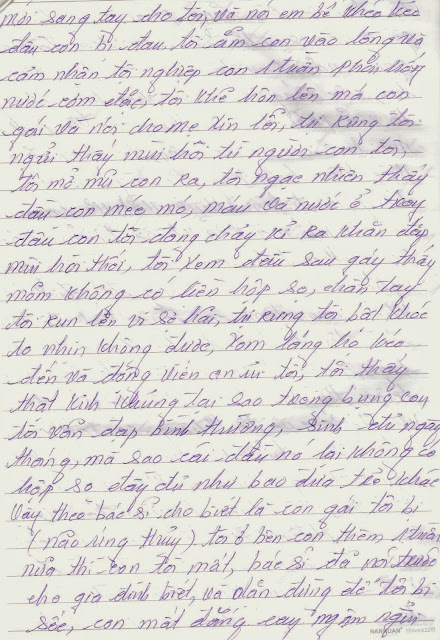 mới sang tay cho tôi, và nói em bế khéo kẻo
đầu con bị đau tôi ẵm con vào lòng và
cảm nhận tội nghiệp con 1 tuần phải uống
nước cầm tôi khẽ hôn lên má con
gái và nói cho mẹ xin lỗi, tui cũng tôi
ngửi thấy mùi hôi từ người con tôi,
tôi mở mũ con ra, tôi ngạc nhiên thấy
đầu con méo mó, máu và nước ở trong
đầu con tôi đang chảy rỉ ra khăn đắp
mùi hôi thối, tôi xem đầu sau gáy thấy
mềm không có liền hộp sọ, chân tay
tôi run lên vì sợ hãi, tôi bật khóc
to nhịn không được, xóm láng họ kéo
đến và động viên an ủi tôi, tôi thấy
thật kinh khủng tại sao trong bụng con
tôi vẫn đạp bình thường, sinh đủ ngày
tháng, mà sao cái đầu nó lại không có
hộp sọ đầy đủ như bao đứa trẻ khác
vậy theo bác sĩ cho biết là con gái tôi bị
(não úng thủy) tôi ở bên con thêm 1 tuần
nữa thì con tôi mất, bác sĩ đã nói trước
cho gia đình biết, và dặn đừng để tôi bị
sốc, con mất đắng cay ngậm ngùi